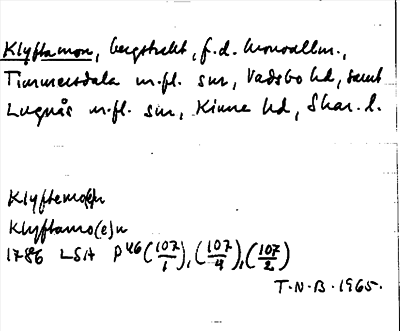 Klyftamon, bergstrakt, f.d. kronoallm.,
Timmersdala m.fl. snr, Vadsbo hd, samt
Lugnås m.fl. snr, Kinne hd, Skar. l.
Klyftemo(e)n
Klyftamo(e)n
1786 LSA P46 (107/1), (107/4), (107/2)
T.N.B. 1965.